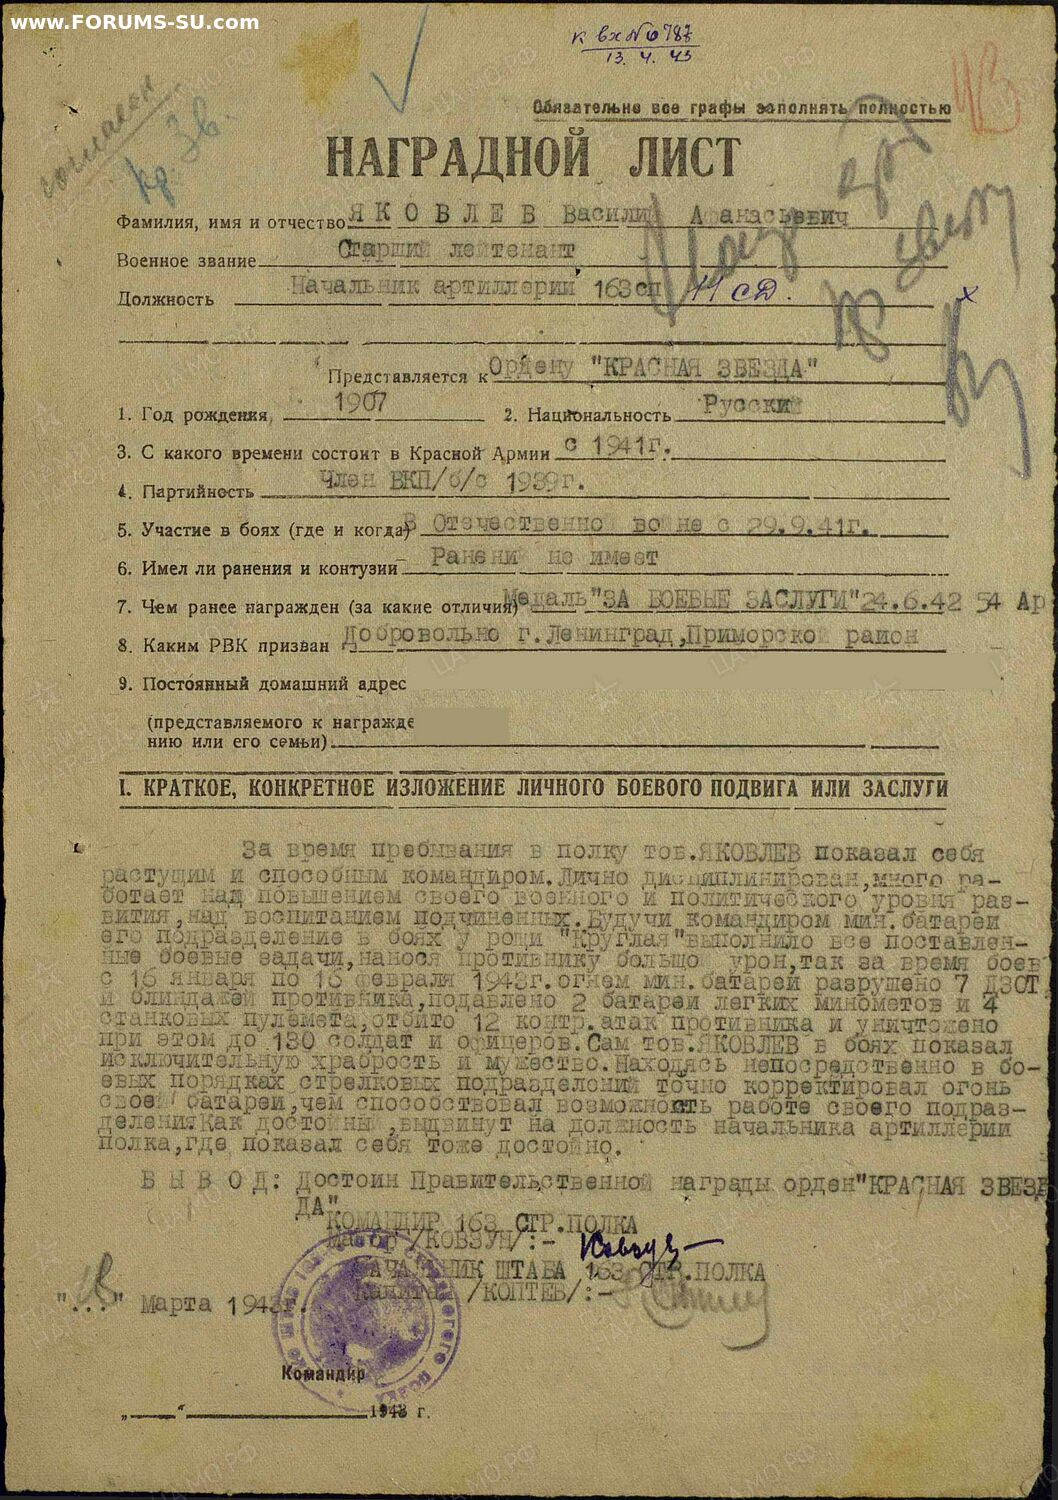 www.FORUMS-SU.com
к вх № 0787
13. 4. 43
согласен
Кр. Зв.
Обязательно все графы заполнять полностью
НАГРАДНОЙ ЛИСТ
Фамилия, имя и отчество ЯКОВЛЕВ Василий Афанасьевич
Военное звание Старший лейтенант
Должность Начальник артиллерии 163сп 11 сд.
Представляется к Ордену "КРАСНАЯ ЗВЕЗДА"
1. Год рождения 1907 2. Национальность Русский
3. С какого времени состоит в Красной Армии с 1941г.
4. Партийность Член ВКП/б/с 1939г.
5. Участие в боях (где и когда) В Отечественной войне с 29.9.41г.
6. Имел ли ранения и контузии Ранений не имеет
7. Чем ранее награжден (за какие отличия) Медаль "ЗА БОЕВЫЕ ЗАСЛУГИ"24.6.42 54 Ар
8. Каким РВК призван Добровольно г.Ленинград,Приморской район
9. Постоянный домашний адрес
(представляемого к награжде
нию или его семьи)
I. КРАТКОЕ, КОНКРЕТНОЕ ИЗЛОЖЕНИЕ ЛИЧНОГО БОЕВОГО ПОДВИГА ИЛИ ЗАСЛУГИ
За время пребывания в полку тов.ЯКОВЛЕВ показал себя
растущим и способным командиром.Лично дисциплинирован,много ра-
ботает над повышением своего военного и политического уровня раз-
вития,над воспитанием подчиненных.Будучи командиром мин.батареи
его подразделение в боях у рощи "Круглая"выполнило все поставлен-
ные боевые задачи,нанося противнику большо урон,так за время боев
с 16 января по 16 февраля 1943г.огнем мин.батареи разрушено 7 ДЗОТ
и блиндажей противника,подавлено 2 батареи легких минометов и 4
станковых пулемета,отбито 12 контр.атак противника и уничтожено
при этом до 130 солдат и офицеров.Сам тов.ЯКОВЛЕВ в боях показал
исключительную храбрость и мужество.Находясь непосредственно в бо-
евых порядках стрелковых подразделений точно корректировал огонь
своей батареи,чем способствовал возможность работе своего подраз-
деления.Как достойный,выдвинут на должность начальника артиллерии
полка,где показал себя тоже достойно.
ВЫВОД: Достоин Правительственной награды орден"КРАСНАЯ ЗВЕЗ
ДА"
КОМАНДИР 163 СТР.ПОЛКА
Майор /КОВЗУН/:- Ковзун
НАЧАЛЬНИК ШТАБА 163 СТР.ПОЛКА
Капитан /КОПТЕВ/:-
"..." Марта 1943г.
Командир
"___" 1943 г.